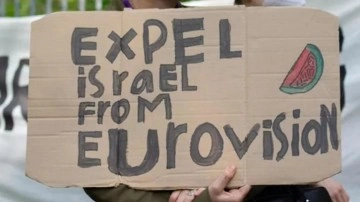 EXPEL
iSRAEL
FROM
EUROVISION